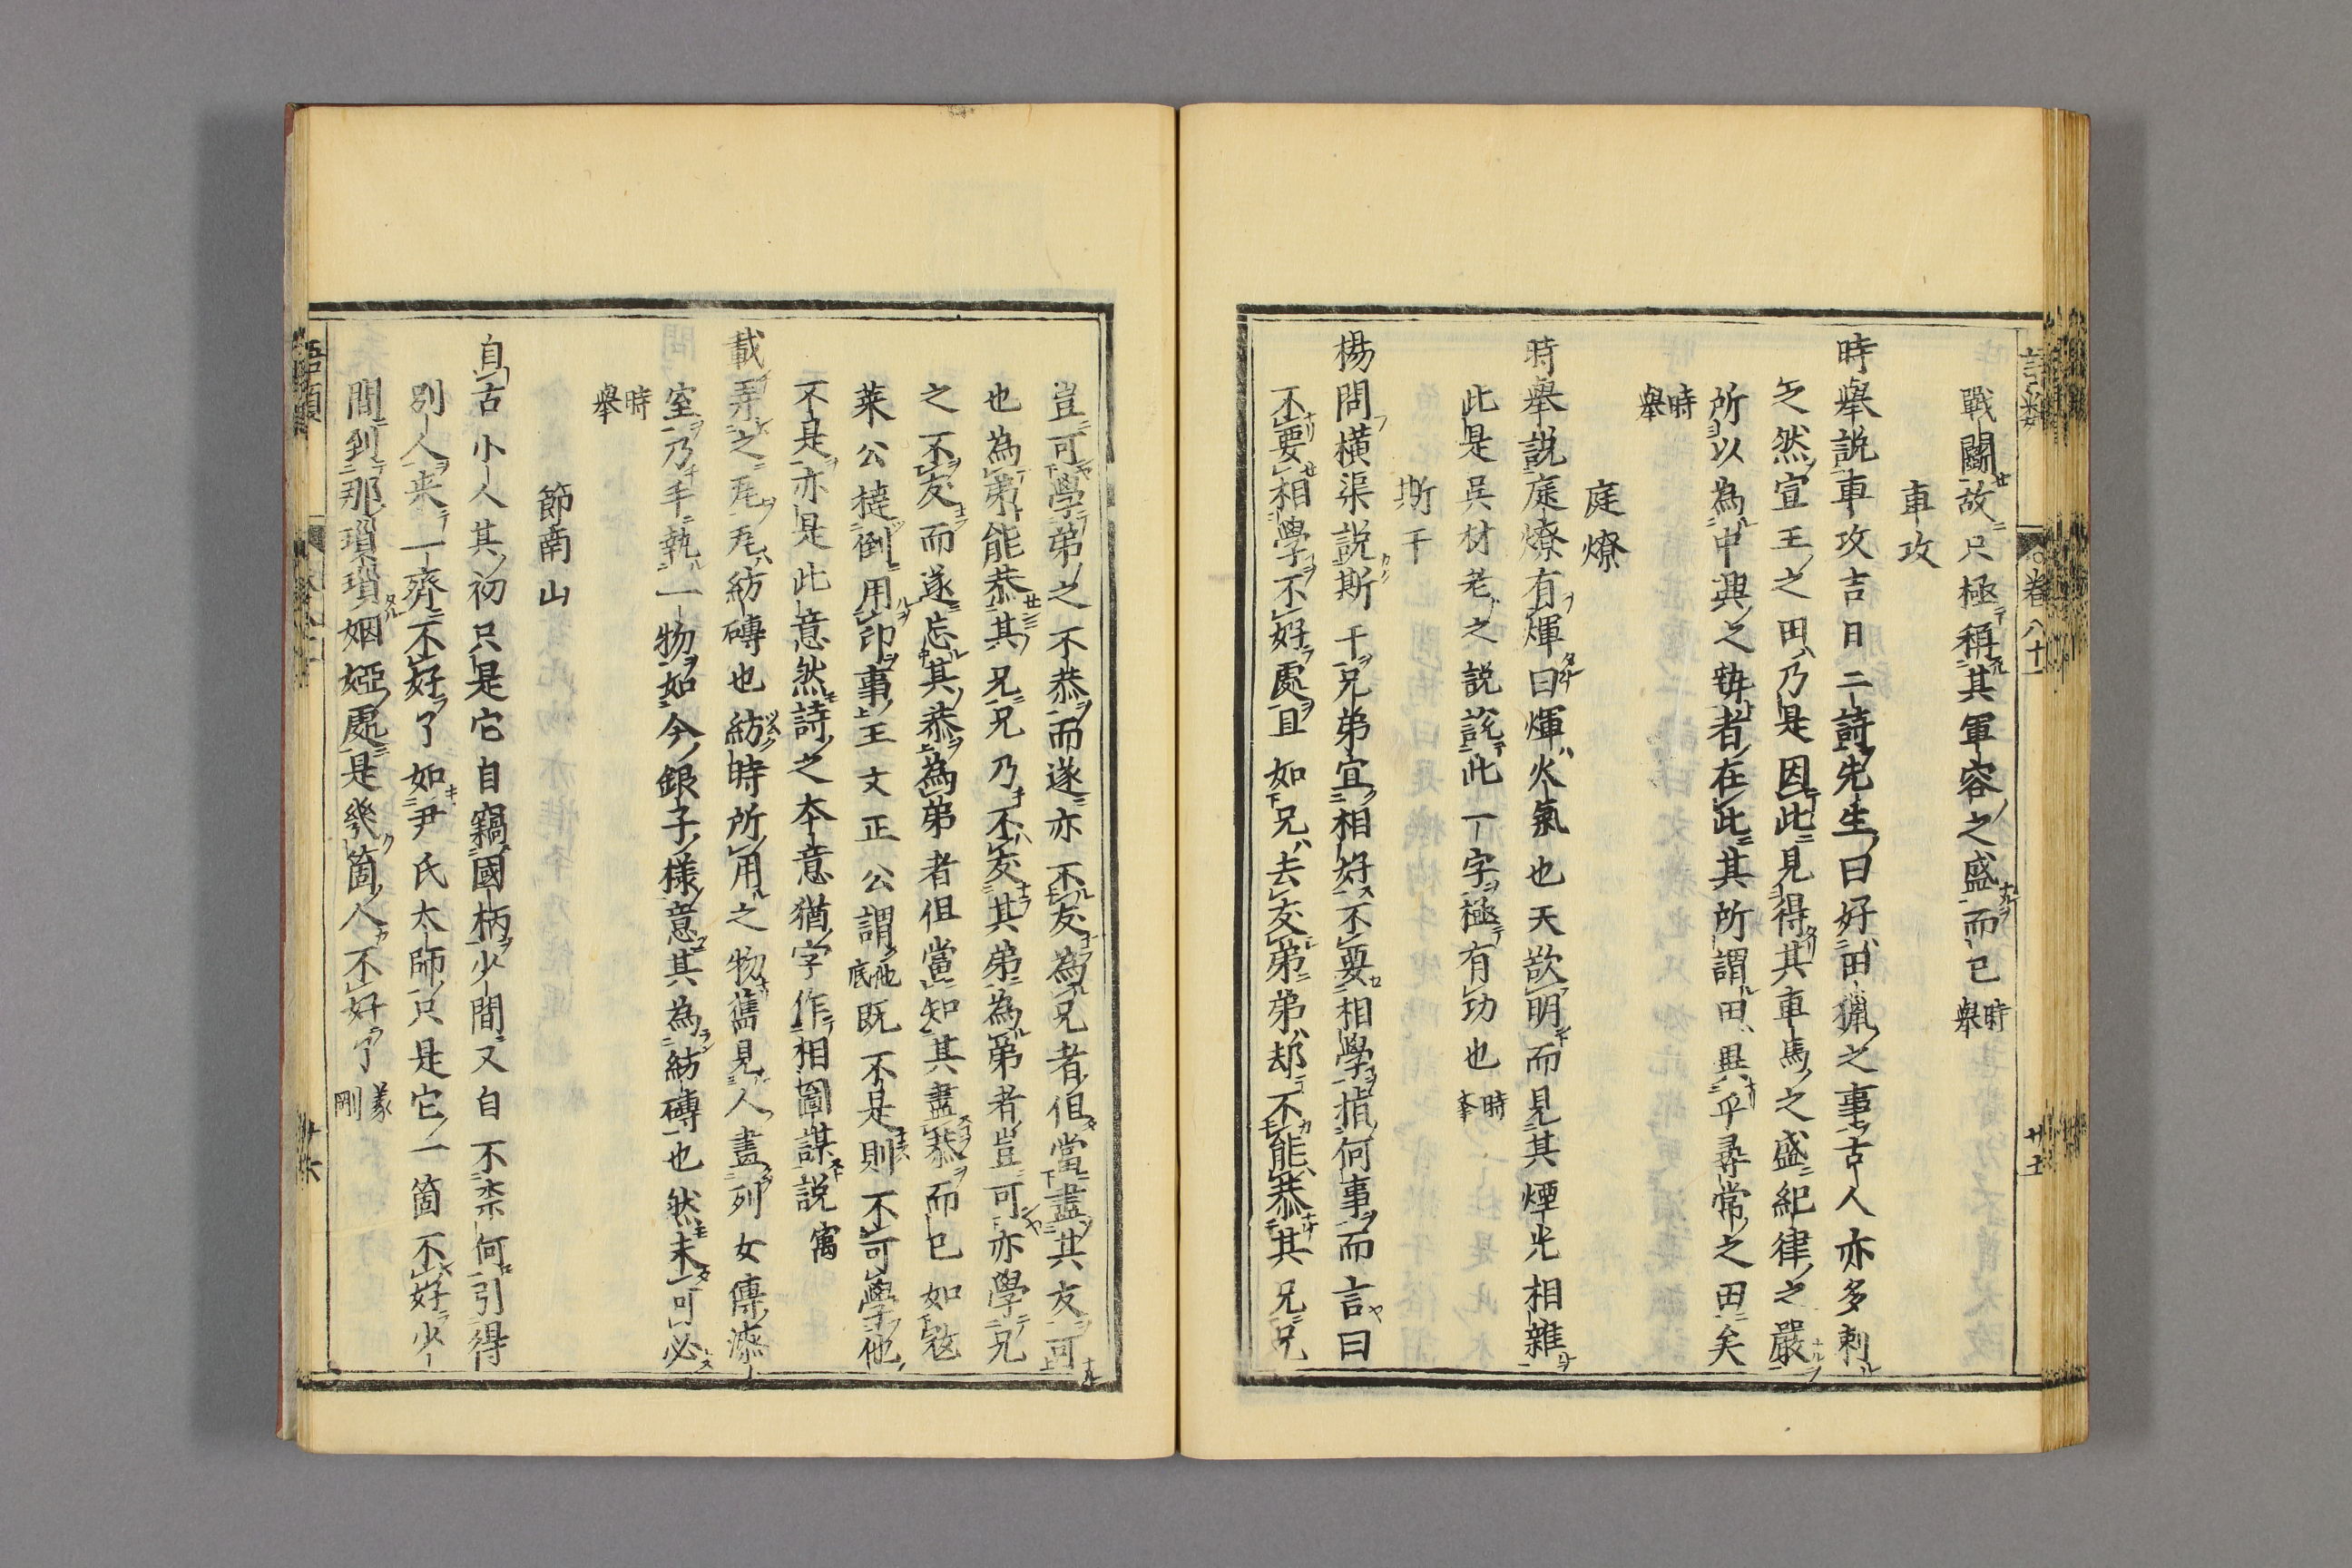 戰鬭故只極稱其軍容之盛而已時舉
車攻
時舉說車攻吉日二詩先生曰好田獵之事古人亦多刺
之然宣王之田乃是因此見得其車馬之盛紀律之嚴
所以為中興之勢者在此其所謂田異乎尋常之田矣
時舉
庭燎
時舉說庭燎有煇曰煇火氣也天欲明而見其煙光相雜
此是吳材老之說說此一字極有功也時舉
斯干
楊問橫渠說斯干兄弟宜相好不要相學指何事而言曰
不要相學不好處且如兄去友弟弟却不能恭其兄兄
豈可學弟之不恭而遂亦不友為兄者但當盡其友可
也為弟能恭其兄兄乃不友其弟為弟者豈可亦學兄
之不友而遂忘其恭為弟者但當知其盡恭而已如寇
萊公撻倒用印事王文正公謂他底既不是則不可學他
不是亦是此意然詩之本意猶字作相圖謀說 㝢
載弄之瓦瓦紡磚也紡時所用之物舊見人畫列女傳漆
室乃手執一物如今銀子樣意其為紡磚也然未可必
時舉
節南山
自古小人其初只是它自竊國柄少間又自不柰何引得
別人來一齊不好了如尹氏太師只是它一箇不好少
間到那瑣瑣姻婭處是幾箇人不好了義剛
語類
卷八十一
廿六